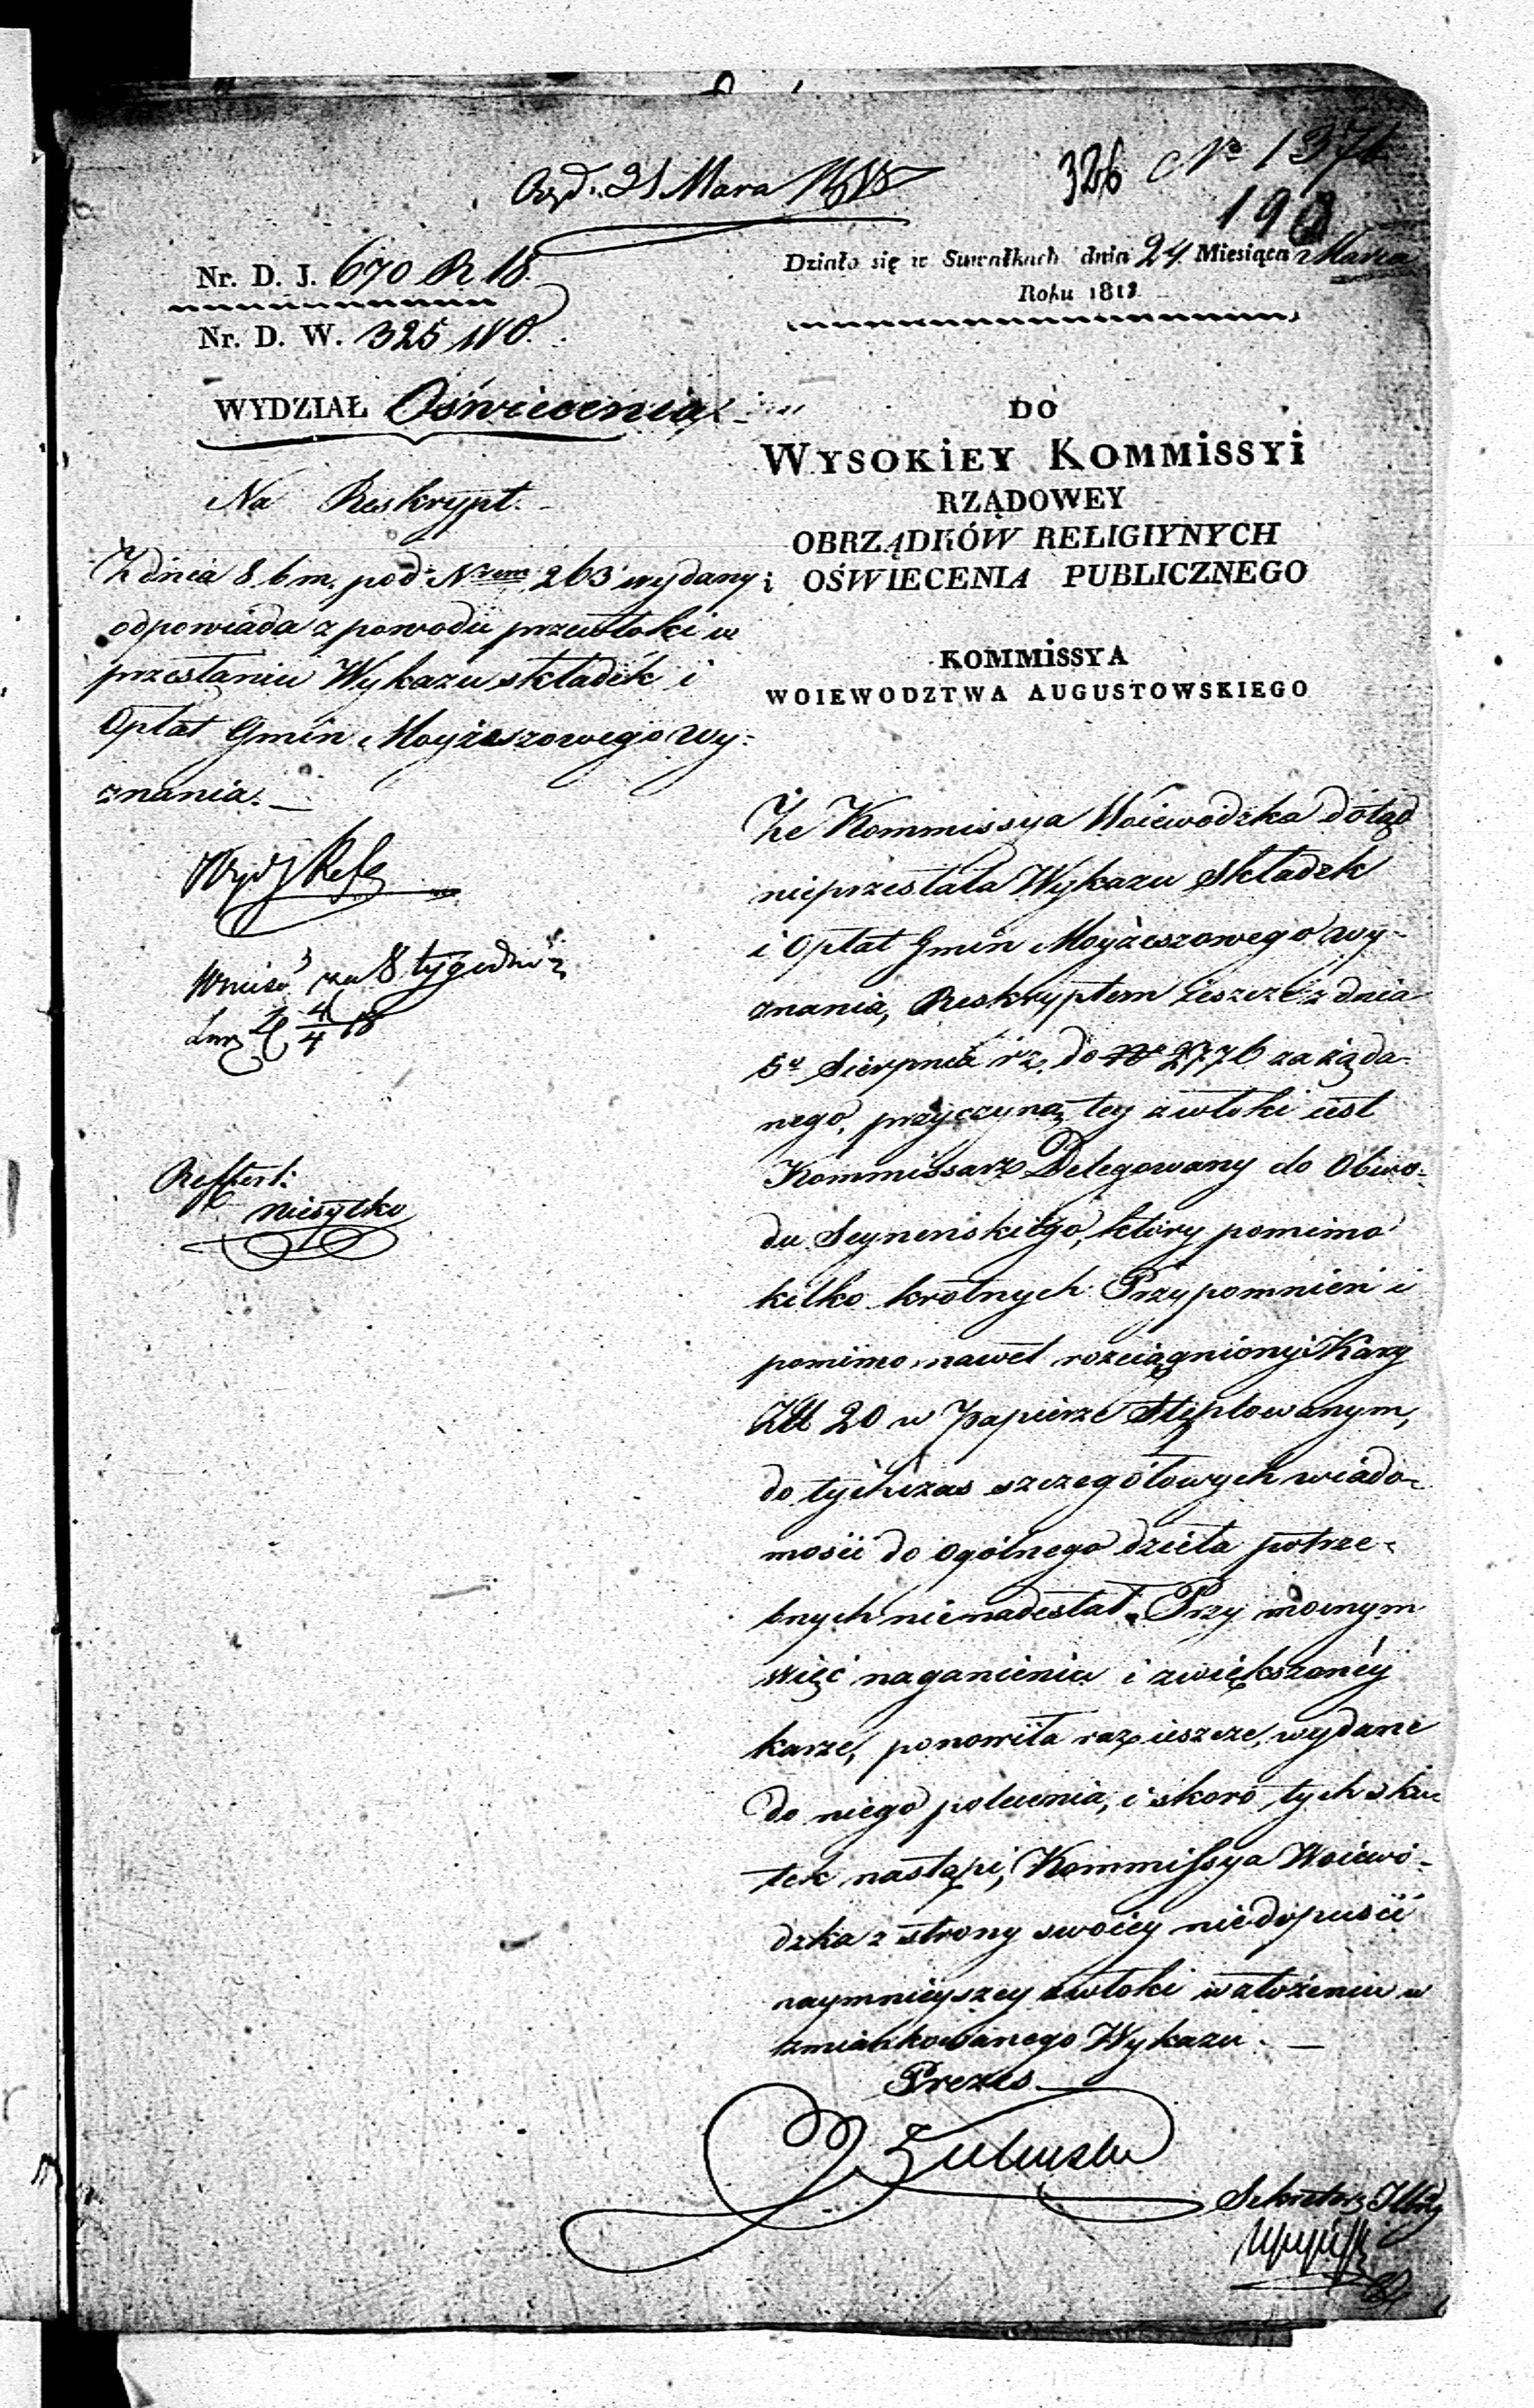 326 № 1371
31 Marca 1818
Działo się w Suwałkach dnia 24 Miesiąca Marca
Roku 1818
Nr. D. J. 670 R 18.
Nr. D. W. 325
WYDZIAŁ Oświecenia
Na Reskrypt.
Z dnia 8 b m. pod Nrem 263 wydany
odpowiada z powodu przewłoki w
przesłaniu Wykazu składek i
Opłat Gmin Moyżeszowego Wy-
znania.
Wnieść za 8 tygodni
4/4 18
Reffert:
DO
WYSOKIEY KOMMISSYI
RZĄDOWEY
OBRZĄDKÓW RELIGIYNYCH
i OŚWIECENIA PUBLICZNEGO
KOMMISSYA
WOIEWODZTWA AUGUSTOWSKIEGO
Że Kommissya Woiewodzka dotąd
nieprzesłała Wykazu Składek
i Opłat Gmin Moyżeszowego wy-
znania, Reskryptem ieszcze z dnia
5o Sierpnia r z. do No 2776 zażąda-
nego, przyczyną tey zwłoki iest
Kommissarz Delegowany do Obwo-
du Seyneńskiego, który pomimo
kilko krotnych Przypomnień i
pomimo nawet rozciągnioney Kary
Złł 20 w Papierze Stęplowanym,
do tychczas szczegółowych wiado-
mości do ogólnego dzieła potrze-
bnych nienadesłał. Przy mocnym
więc naganieniu i zwiększoney
karze, ponowiła raz ieszcze, wydane
do niego polecenia, i skoro tych sku-
tek nastąpi, Kommissya Woiewó-
dzka z strony swoiey niedopuści
naymnieyszey zwłoki w złożeniu w
zmiankowanego Wykazu.
Prezes
Sekretarz Jlny